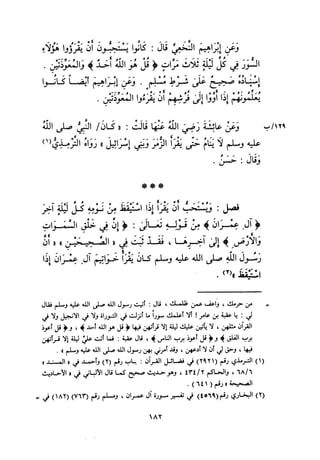 وَعَنْ إِبْرَاهِيمَ النَّخَعِيِّ قَالَ : كَانُوا يَسْتَحِبُّونَ أَنْ يَقْرَؤُوا هَؤُلَاءِ
السُّوَرَ فِي كُلِّ لَيْلَةٍ ثَلَاثَ مَرَّاتٍ ﴿ قُلْ هُوَ اللَّهُ أَحَدٌ ﴾ وَالْمُعَوِّذَتَيْنِ .
إِسْنَادُهُ صَحِيحٌ عَلَى شَرْطِ مُسْلِمٍ . وَعَنْ إِبْرَاهِيمَ أَيْضاً كَانُوا
يُعَلِّمُونَهُمْ إِذَا أَوَوْا إِلَى فُرُشِهِمْ أَنْ يَقْرَءُوا الْمُعَوِّذَتَيْنِ .
١٢٩/ب وَعَنْ عَائِشَةَ رَضِيَ اللَّهُ عَنْهَا قَالَتْ : « كَانَ/ النَّبِيُّ صلى الله
عليه وسلم لَا يَنَامُ حَتَّى يَقْرَأَ الزُّمَرَ وَبَنِي إِسْرَائِيلَ » رَوَاهُ التِّرْمِذِيُّ(١)
وَقَالَ : حَسَنٌ .
***
فصل : وَيُسْتَحَبُّ أَنْ يَقْرَأَ إِذَا اسْتَيْقَظَ مِنْ نَوْمِهِ كُلَّ لَيْلَةٍ آخِرَ
﴿ آلِ عِمْرَانَ ﴾ مِنْ قَوْلِهِ تَعَالَى : ﴿ إِنَّ فِي خَلْقِ السَّمَوَاتِ
وَالْأَرْضِ ﴾ إِلَى آخِرِهَا ، فَقَدْ ثَبَتَ فِي « الصَّحِيحَيْنِ » « أَنَّ
رَسُولَ اللَّهِ صلى الله عليه وسلم كَانَ يَقْرَأُ خَوَاتِيمَ آلِ عِمْرَانَ إِذَا
اسْتَيْقَظَ »(٢) .
= من حرمك ، واعف عمن ظلمك ، قال : أتيت رسول الله صلى الله عليه وسلم فقال
لي : يا عقبة بن عامر ! ألا أعلمك سوراً ما أنزلت في التوراة ولا في الإنجيل ولا في
القرآن مثلهن ، لا يأتين عليك ليلة إلا قرأتهن فيها ﴿ قل هو الله أحد ﴾ ، و ﴿ قل أعوذ
برب الفلق ﴾ و ﴿ قل أعوذ برب الناس ﴾ ، قال عقبة : فما أتت عليّ ليلة إلا قرأتهن
فيها ، وحق لي أن لا أدعهن ، وقد أمرني بهن رسول الله صلى الله عليه وسلم » .
(١) الترمذي رقم (٢٩٢١) في فضائل القرآن : باب رقم (٢) وأحمد في « المسند »
٦٨/٦ ، والحاكم ٤٣٤/٢ ، وهو حديث صحيح كما قال الألباني في « الأحاديث
الصحيحة » رقم ( ٦٤١ ) .
(٢) البخاري رقم (٤٥٦٩) في تفسير سورة آل عمران ، ومسلم رقم (٧٦٣) (١٨٢) في =
١٨٢